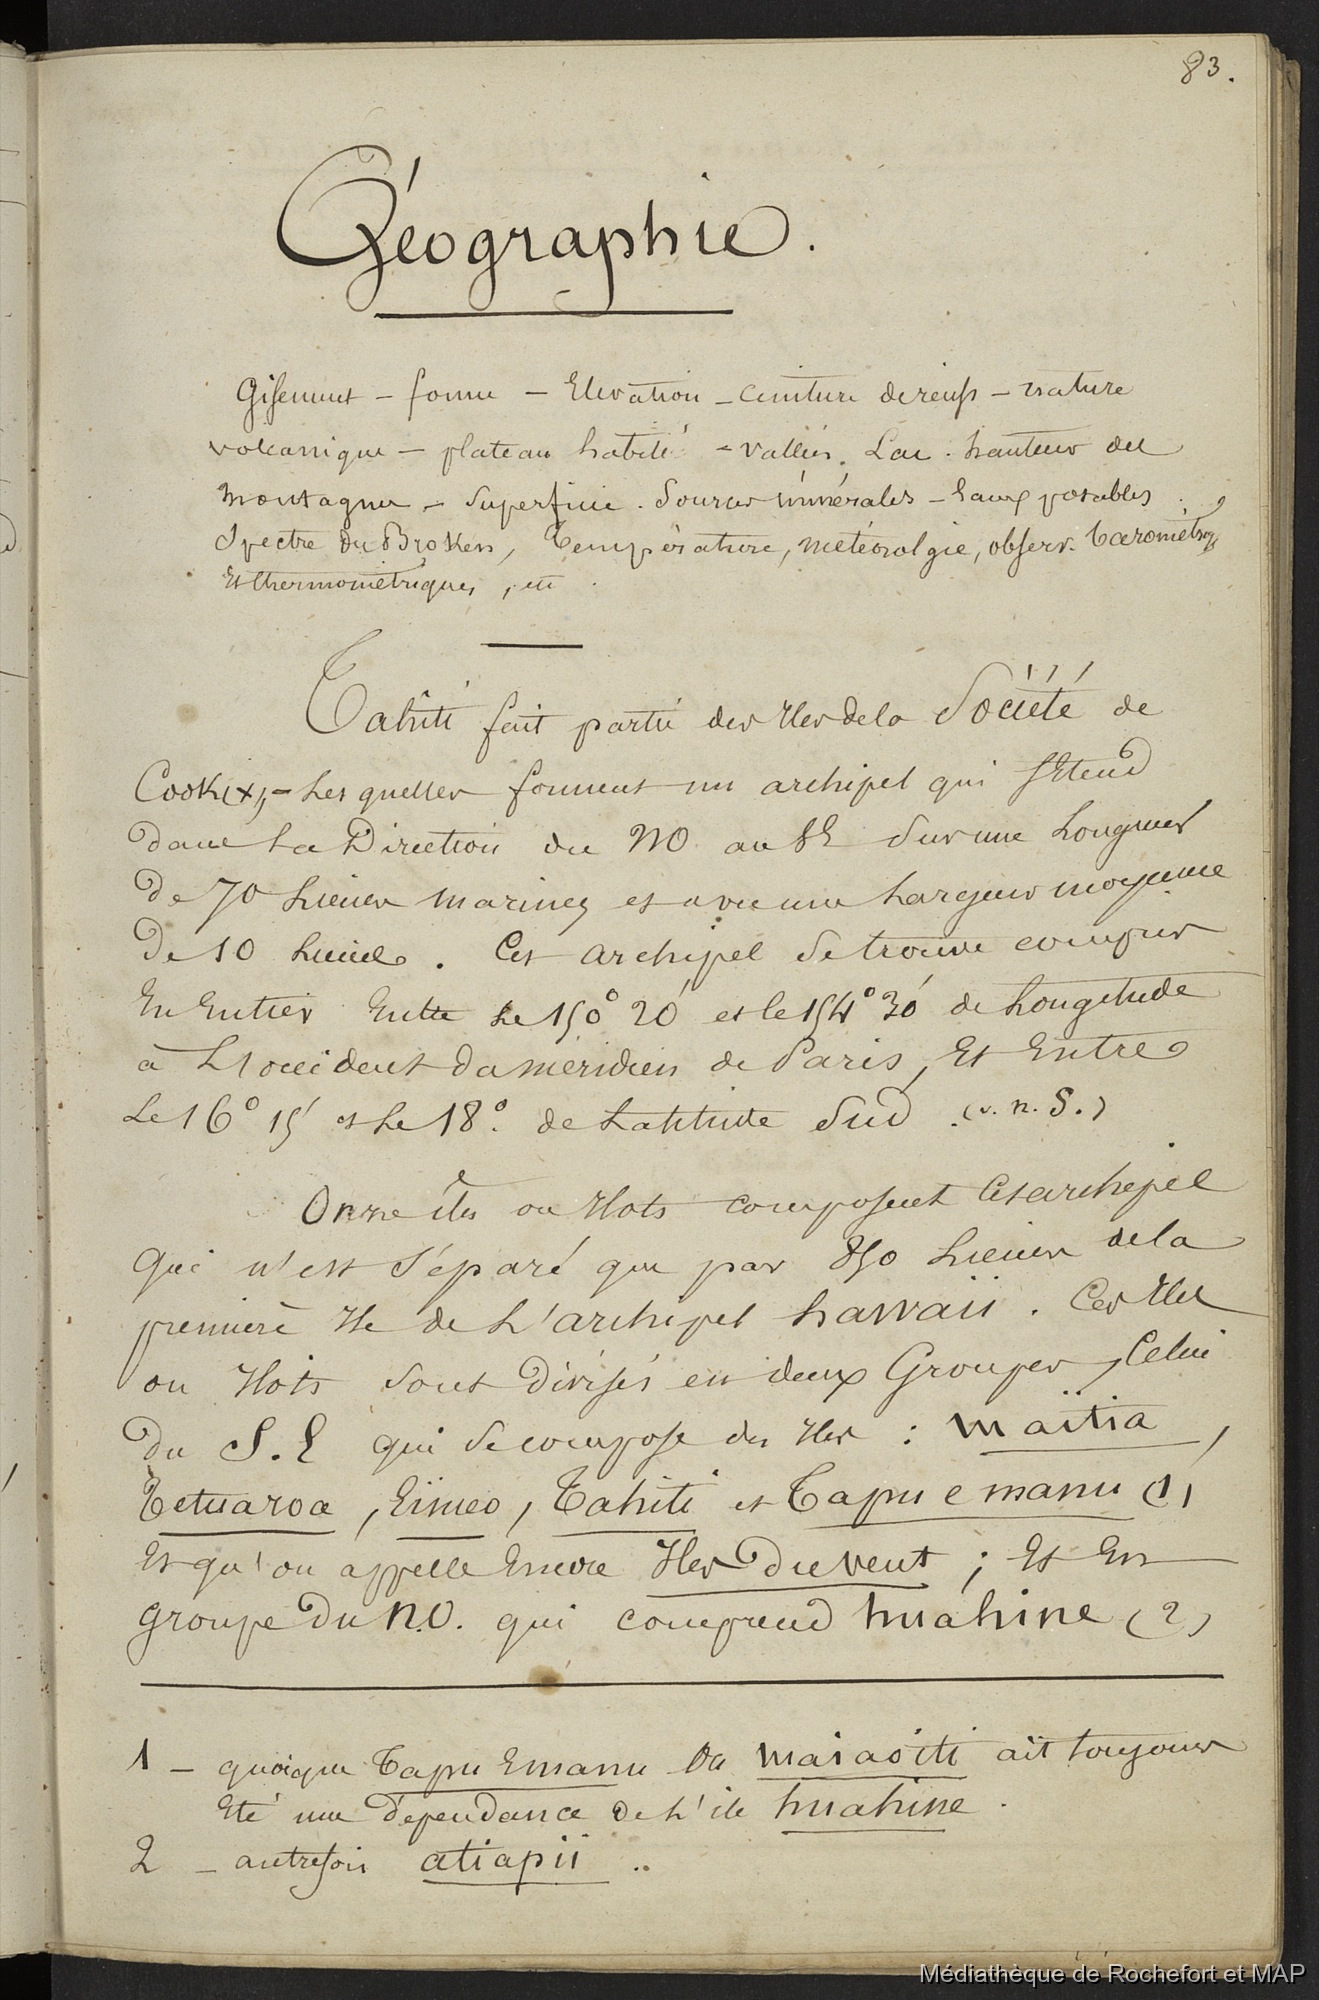 83.
Géographie.
Gisement – forme – Elévation – ceinture de récifs – nature
volcanique – plateau habité – vallées. Lac. hauteur des
montagnes – Superficie. Sources minérales – Eaux potables.
Spectre du Broken, Température, météorolgie, observ. barométriq
Et thermométriques, etc.
Tahiti fait partie des Iles de la Société de
Cook (x), – Lesquelles forment un archipel qui s'Etend
dans La Direction du NO au SE Sur une Longueur
De 70 Lieues marines et avec une Largeur moyenne
De 10 Lieues. Cet archipel Se trouve compris
En Entier Entre Le 150° 20' et le 154° 30' de Longitude
à L'occident du méridien de Paris, Et Entre
Le 16° 15' et Le 18°. de Latitude Sud. (v. n. S.)
Onze îles ou Ilots composent Cet archipel
Qui n'est Séparé que par 850 Lieues de la
première Ile de L'archipel hawaii. Ces Iles
ou Ilots Sont Divisés en deux Groupes, Celui
Du S.E qui Se compose des Iles : maïtia,
Tetuaroa, Eïmeo, Tahiti et Tapu e manu (1)
Et qu'on appelle Encore Iles Du vent ; Et En
groupe Du N.O. qui comprend huahine (2)
1 – quoique Tapu Emanu Ou maiaoïti ait toujours
Eté une Dépendance de L'ile huahine.
2 – autrefois atiapii ..
Médiathèque de Rochefort et MAP